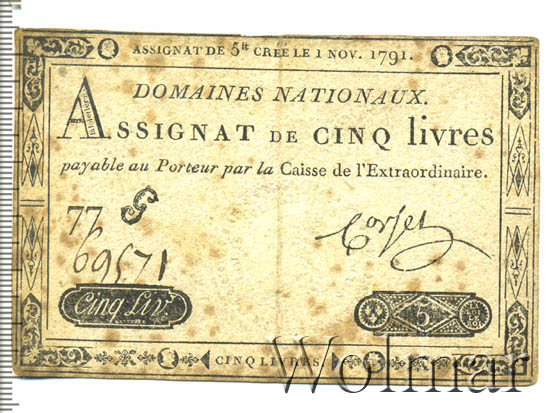 ASSIGNAT DE 5lt CRÉÉ LE 1 NOV. 1791.
DOMAINES NATIONAUX.
ASSIGNAT DE CINQ livres
payable au Porteur par la Caisse de l'Extraordinaire.
77 G
69571
Corsel
Cinq Livs
5
CINQ LIVRES
Wolmar